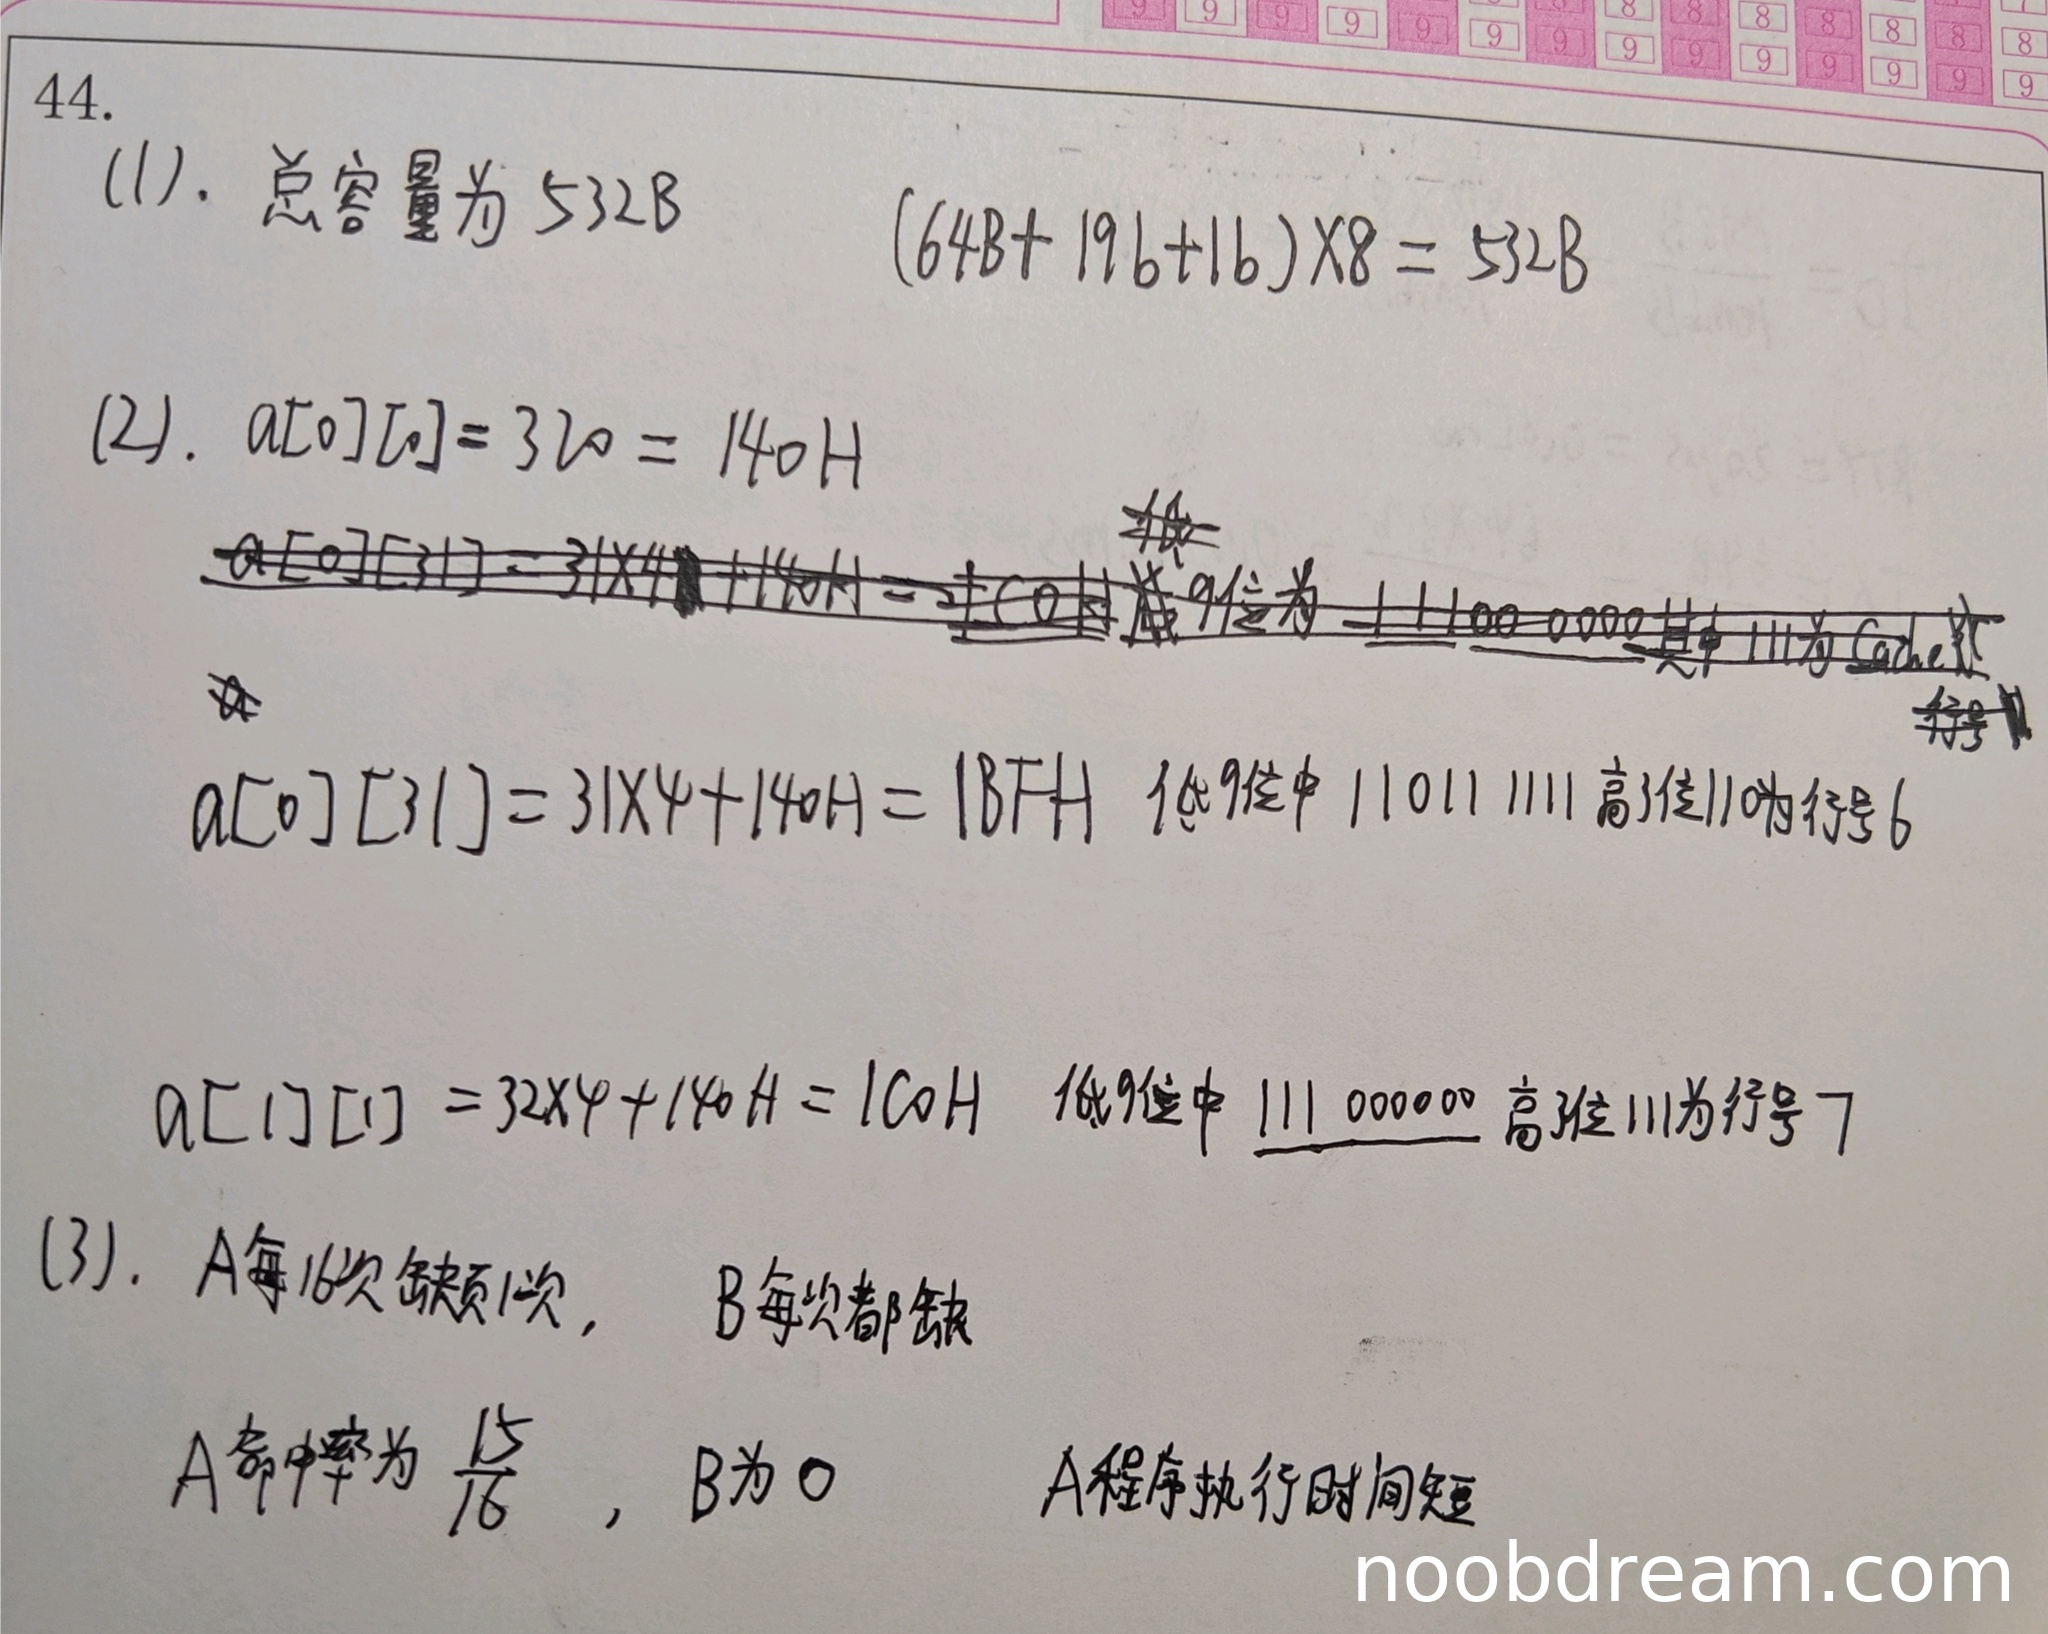 9 9 9 9 9 9 9 8 8 8 8 8 8 8
9 9 9 9 9 9 9
44.
(1). 总容量为 532B (64B+19b+1b)×8=532B
(2). a[0][0]=320=140H
a[0][31]=31×4+140H=1C0H 9位为 111000000 其中111为Cache
行号
a[0][31]=31×4+140H=1BFH 低9位中 110111111 高3位110为行号6
a[1][1]=32×4+140H=1C0H 低9位中 111 000000 高3位111为行号7
(3). A每16次缺页1次, B每次都缺
A命中率为 15/16 , B为0 A程序执行时间短
noobdream.com